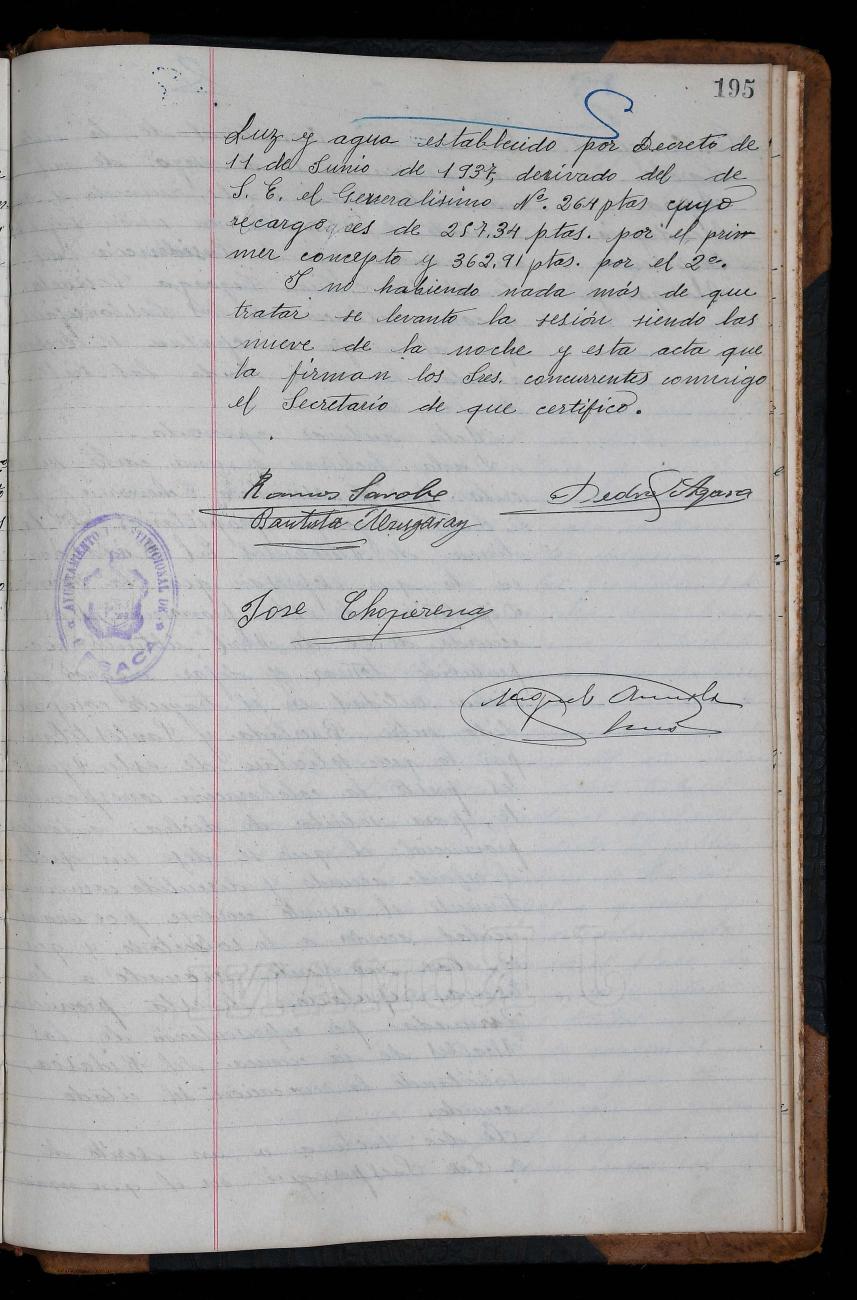 195
Luz y agua establecido por Decreto de
11 de Junio de 1937, derivado del de
S. E. el Generalisimo Nº. 264 ptas cuyo
recargo es de 257.34 ptas. por el prim
mer concepto y 362,91 ptas. por el 2º.
Y no habiendo nada más de que
tratar se levanto la sesión siendo las
nueve de la noche y esta acta que
la firman los Sres. concurrentes conmigo
el Secretario de que certifico.
Ramos Sarobe
Pedro Agara
Bautista
AYUNTAMIENTO CONSTITUCIONAL DE
LESACA
Jose Choperena
Miguel